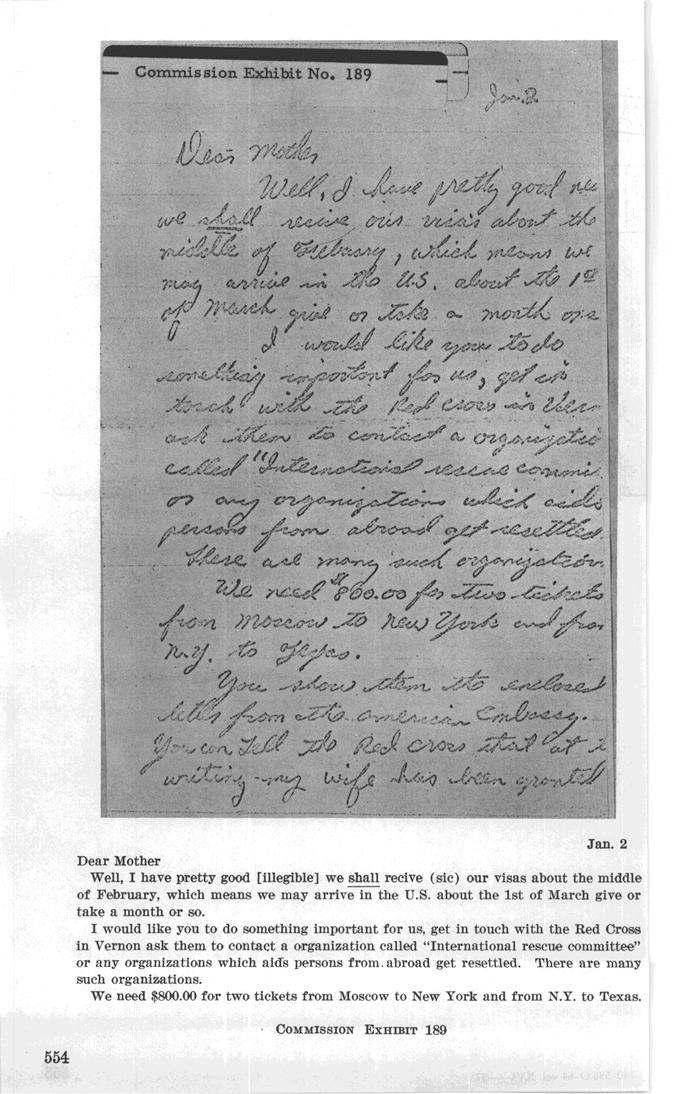 Commission Exhibit No. 189
Jan. 2
Dear Mother
Well, I have pretty good
we shall recive our visas about the
middle of Febuary, which means we
may arrive in the U.S. about the 1st
of March give or take a month or s
I would like you to do
something important for us, get in
touch with the Red cross in Vern
ask them to contact a organizatio
called "International rescue commi
or any organizations which aids
persons from abroad get resettled.
There are many such organization
We need $800.00 for two tickets
from Moscow to New York and from
N.Y. to Texas.
You show them the enclosed
letter from the american Embassy.
You can tell the Red cross that at
writing my wife has been granted
Jan. 2
Dear Mother
Well, I have pretty good [illegible] we shall recive (sic) our visas about the middle
of February, which means we may arrive in the U.S. about the 1st of March give or
take a month or so.
I would like you to do something important for us, get in touch with the Red Cross
in Vernon ask them to contact a organization called "International rescue committee"
or any organizations which aids persons from abroad get resettled. There are many
such organizations.
We need $800.00 for two tickets from Moscow to New York and from N.Y. to Texas.
COMMISSION EXHIBIT 189
554